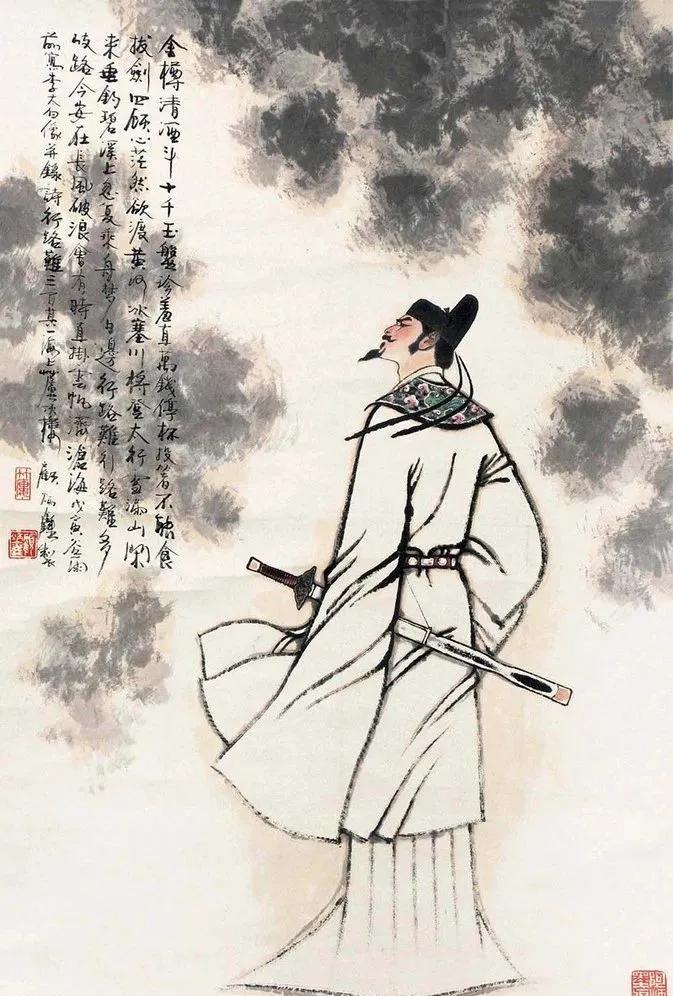 金樽清酒斗十千玉盤珍羞直萬錢停杯投箸不能食
拔劍四顧心茫然欲渡黃河冰塞川將登太行雪滿山閑
來垂釣碧溪上忽復乘舟夢日邊行路難行路難多
歧路今安在長風破浪會有時直掛雲帆濟滄海戊寅
寫李太白像并錄詩行路難三首其一海上顧炳鑫製